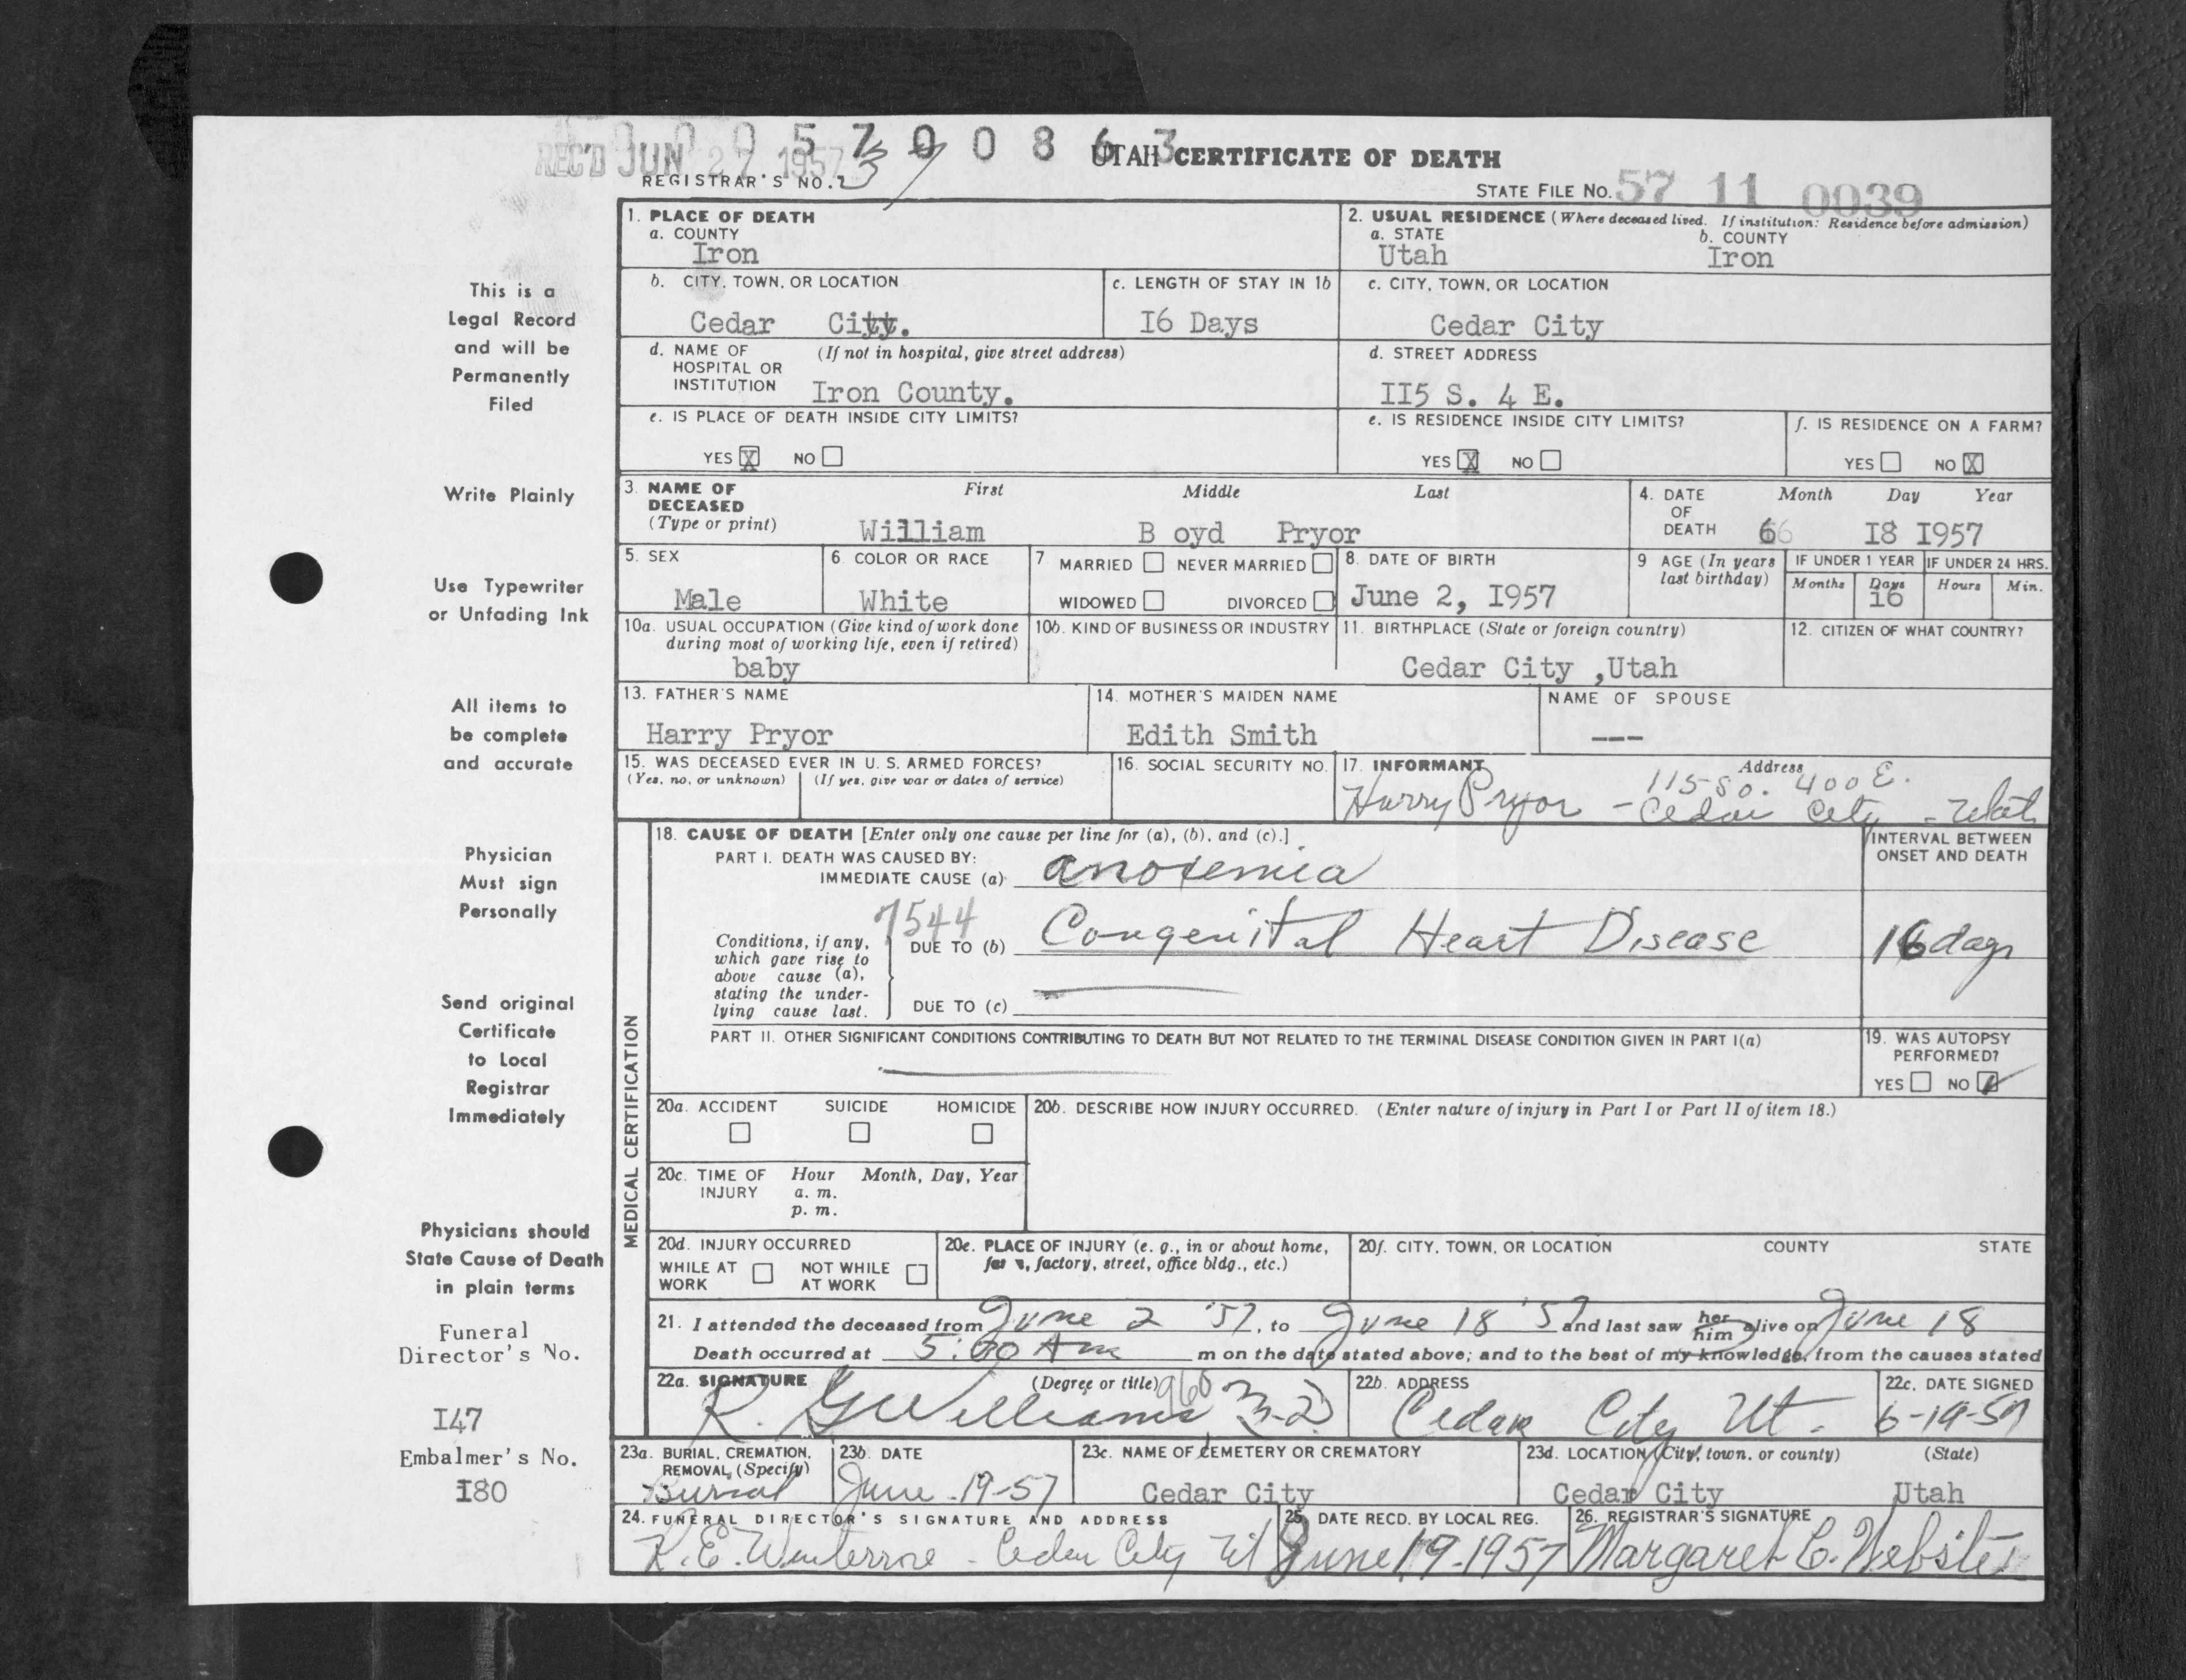 0 0 0 5 7 0 0 8 6 3
REC'D JUN 27 1957
UTAH CERTIFICATE OF DEATH
REGISTRAR'S NO. 37
STATE FILE NO. 57 11 0039
This is a
Legal Record
and will be
Permanently
Filed
Write Plainly
Use Typewriter
or Unfading Ink
All items to
be complete
and accurate
Physician
Must sign
Personally
Send original
Certificate
to Local
Registrar
Immediately
Physicians should
State Cause of Death
in plain terms
Funeral
Director's No.
I47
Embalmer's No.
I80
1. PLACE OF DEATH
a. COUNTY
Iron
2. USUAL RESIDENCE (Where deceased lived. If institution: Residence before admission)
a. STATE b. COUNTY
Utah Iron
b. CITY, TOWN, OR LOCATION
Cedar City.
c. LENGTH OF STAY IN 1b
I6 Days
c. CITY, TOWN, OR LOCATION
Cedar City
d. NAME OF (If not in hospital, give street address)
HOSPITAL OR
INSTITUTION Iron County.
d. STREET ADDRESS
II5 S. 4 E.
e. IS PLACE OF DEATH INSIDE CITY LIMITS?
YES X NO
e. IS RESIDENCE INSIDE CITY LIMITS?
YES X NO
f. IS RESIDENCE ON A FARM?
YES NO X
3. NAME OF First Middle Last
DECEASED
(Type or print) William B oyd Pryor
4. DATE Month Day Year
OF
DEATH 6 I8 I957
5. SEX
Male
6. COLOR OR RACE
White
7 MARRIED NEVER MARRIED
WIDOWED DIVORCED
8. DATE OF BIRTH
June 2, I957
9 AGE (In years
last birthday)
IF UNDER 1 YEAR IF UNDER 24 HRS.
Months Days Hours Min.
16
10a. USUAL OCCUPATION (Give kind of work done
during most of working life, even if retired)
baby
10b. KIND OF BUSINESS OR INDUSTRY
11. BIRTHPLACE (State or foreign country)
Cedar City ,Utah
12. CITIZEN OF WHAT COUNTRY?
13. FATHER'S NAME
Harry Pryor
14. MOTHER'S MAIDEN NAME
Edith Smith
NAME OF SPOUSE
---
15. WAS DECEASED EVER IN U. S. ARMED FORCES?
(Yes, no, or unknown) (If yes, give war or dates of service)
16. SOCIAL SECURITY NO.
17. INFORMANT Address
115 So. 400 E.
Harry Pryor - Cedar City - Utah
MEDICAL CERTIFICATION
18. CAUSE OF DEATH [Enter only one cause per line for (a), (b), and (c).]
PART I. DEATH WAS CAUSED BY:
IMMEDIATE CAUSE (a) anoxemia
INTERVAL BETWEEN
ONSET AND DEATH
7544
Conditions, if any,
which gave rise to
above cause (a),
stating the under-
lying cause last.
DUE TO (b) Congenital Heart Disease
16 days
DUE TO (c)
PART II. OTHER SIGNIFICANT CONDITIONS CONTRIBUTING TO DEATH BUT NOT RELATED TO THE TERMINAL DISEASE CONDITION GIVEN IN PART I(a)
19. WAS AUTOPSY
PERFORMED?
YES NO
20a. ACCIDENT SUICIDE HOMICIDE
20b. DESCRIBE HOW INJURY OCCURRED. (Enter nature of injury in Part I or Part II of item 18.)
20c. TIME OF Hour Month, Day, Year
INJURY a. m.
p. m.
20d. INJURY OCCURRED
WHILE AT NOT WHILE
WORK AT WORK
20e. PLACE OF INJURY (e. g., in or about home,
farm, factory, street, office bldg., etc.)
20f. CITY, TOWN, OR LOCATION COUNTY STATE
21. I attended the deceased from June 2 '57, to June 18 '57 and last saw her him alive on June 18
Death occurred at 5:00 Am m on the date stated above; and to the best of my knowledge, from the causes stated
22a. SIGNATURE (Degree or title) 960
R. G Williams M.D
22b. ADDRESS
Cedar City Ut.
22c. DATE SIGNED
6-19-57
23a. BURIAL, CREMATION,
REMOVAL, (Specify)
Burial
23b. DATE
June-19-57
23c. NAME OF CEMETERY OR CREMATORY
Cedar City
23d. LOCATION (City, town, or county) (State)
Cedar City Utah
24. FUNERAL DIRECTOR'S SIGNATURE AND ADDRESS
K.E. - Cedar City Ut
25 DATE RECD. BY LOCAL REG.
June 19-1957
26. REGISTRAR'S SIGNATURE
Margaret C. Webster